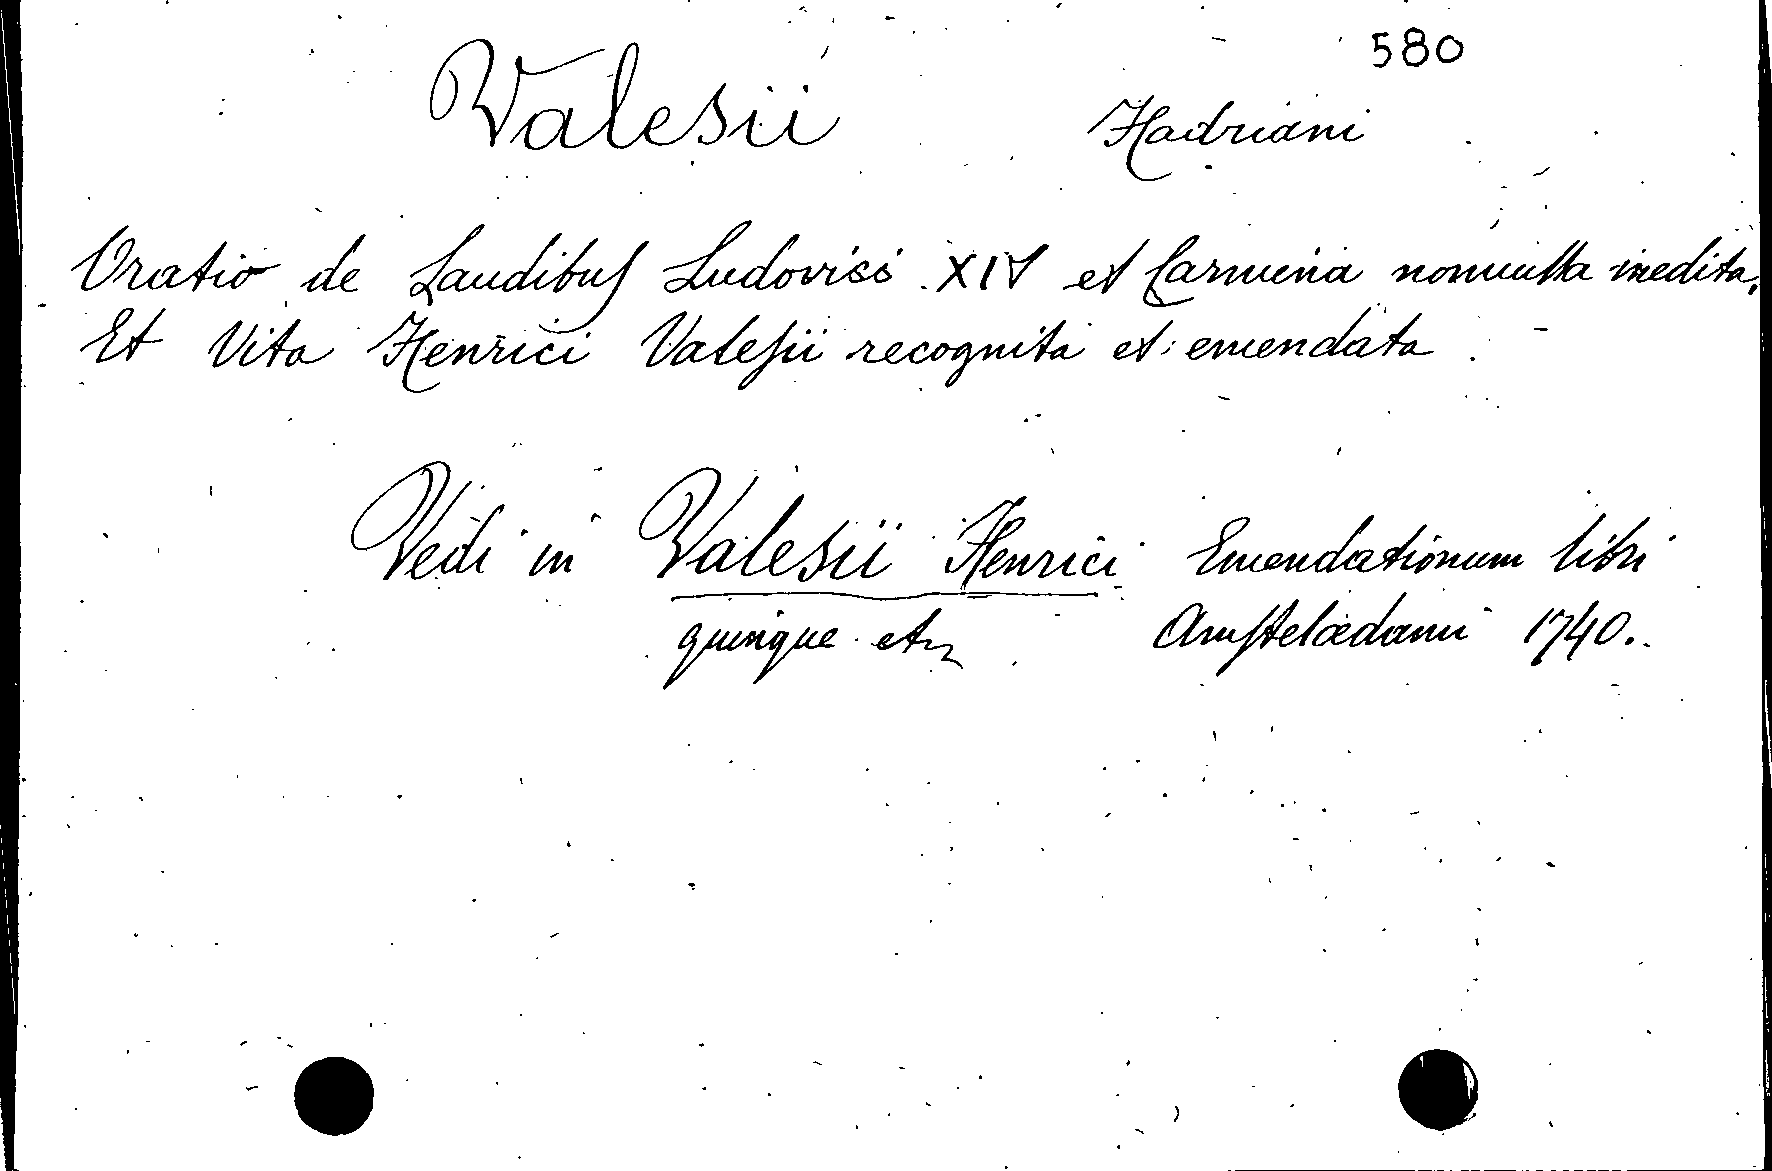 580
Valesii Hadriani
Oratio de Laudibus Ludovici XIV et Carmina nonnulla inedita.
Et Vita Henrici Valesii recognita et emendata
Vedi in Valesii Henrici Emendationum libri
quinque etz Amstelædami 1740.